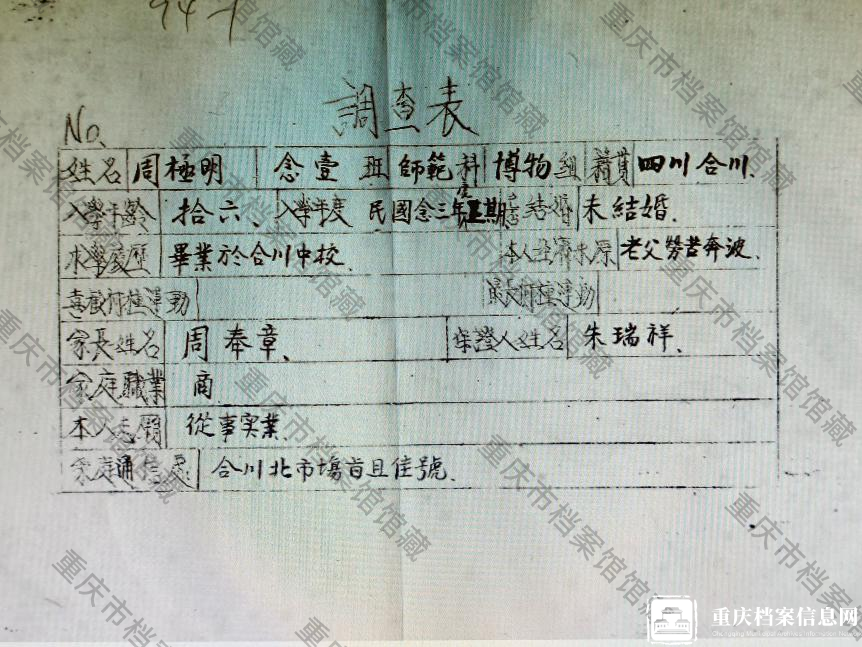 94-1
調查表
No.
姓名 周極明 念壹班 師範科 博物組 籍貫 四川合川.
入學年齡 拾六、 入學年度 民國念三年 期 結婚 未結婚.
求學履歷 畢業於合川中校. 本人 老父勞苦奔波.
喜歡何種 最長何種
家長姓名 周奉章、 保證人姓名 朱瑞祥、
家庭職業 商
本人志願 從事实業.
家庭通信處 合川北市塲 號.
重庆市档案馆馆藏
重庆档案信息网